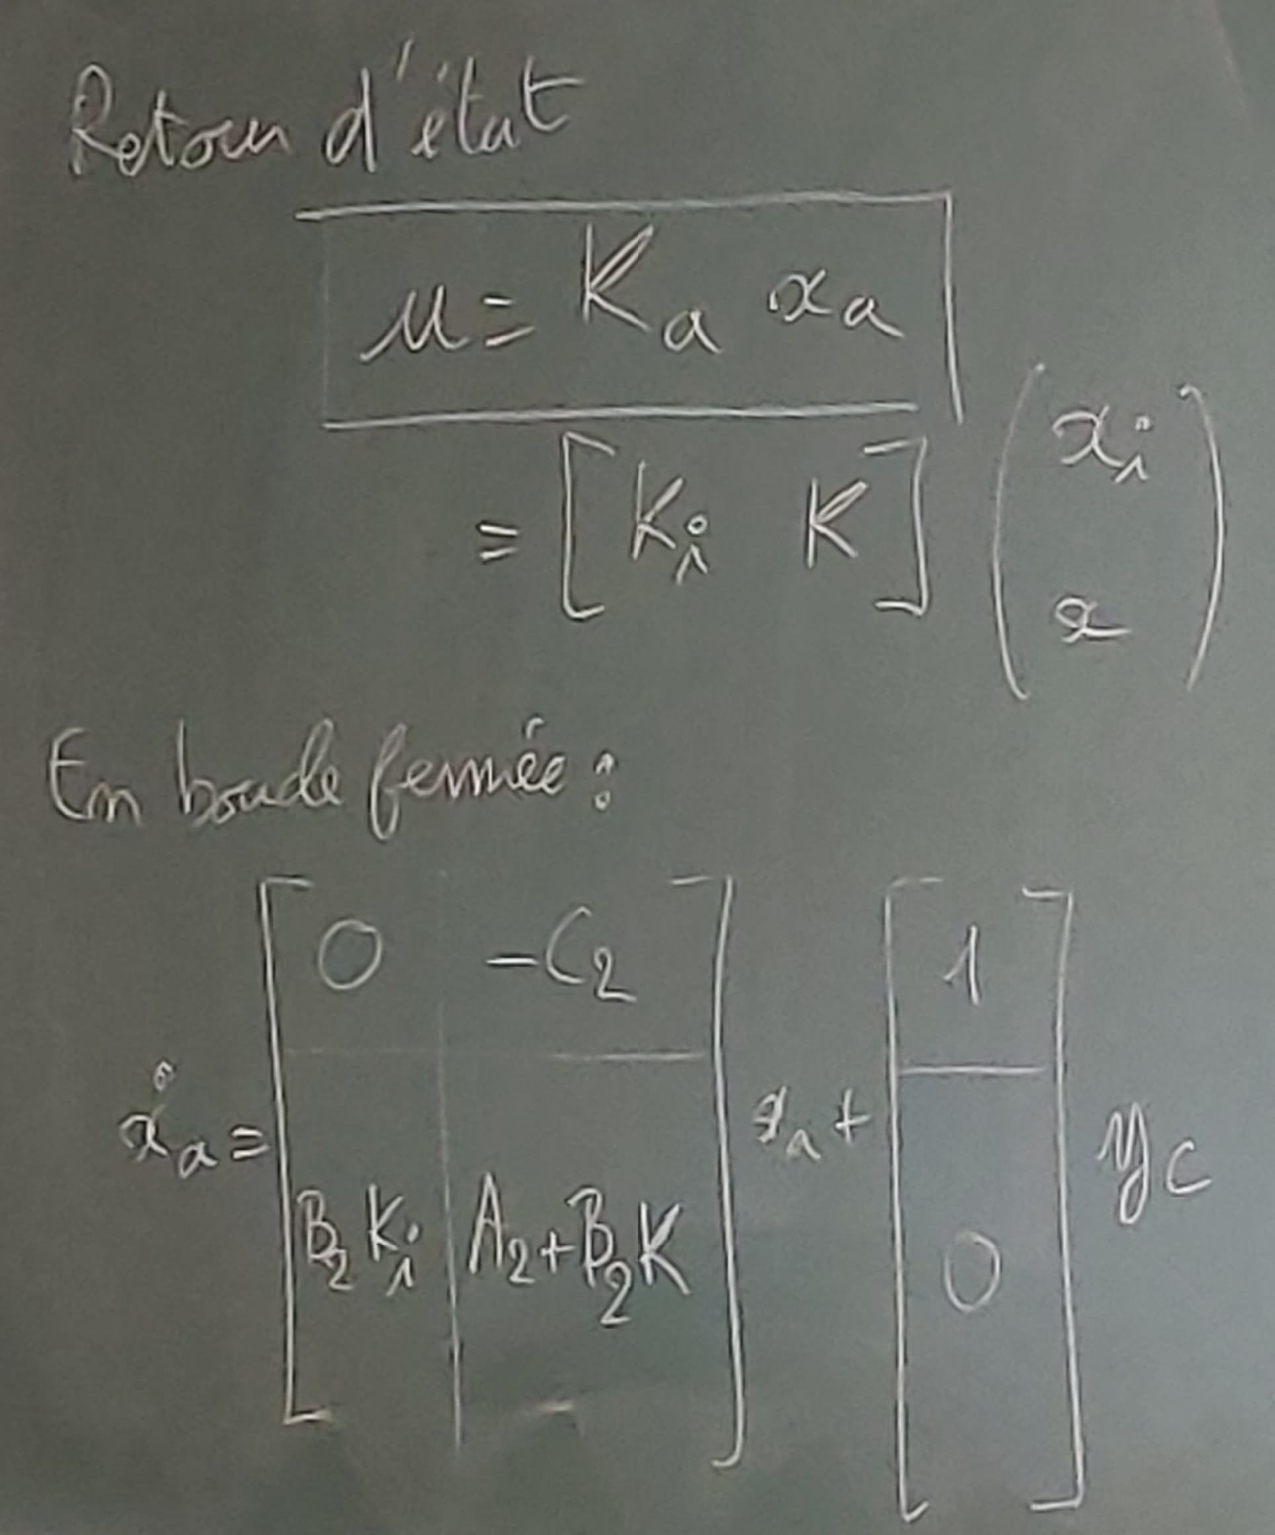 Retour d'état
u = Ka xa
= [ Ki K ] ( xi x )
En boucle fermée :
ẋa = [ 0 -C2 ; B2 Ki A2+B2K ] xa + [ 1 ; 0 ] yc